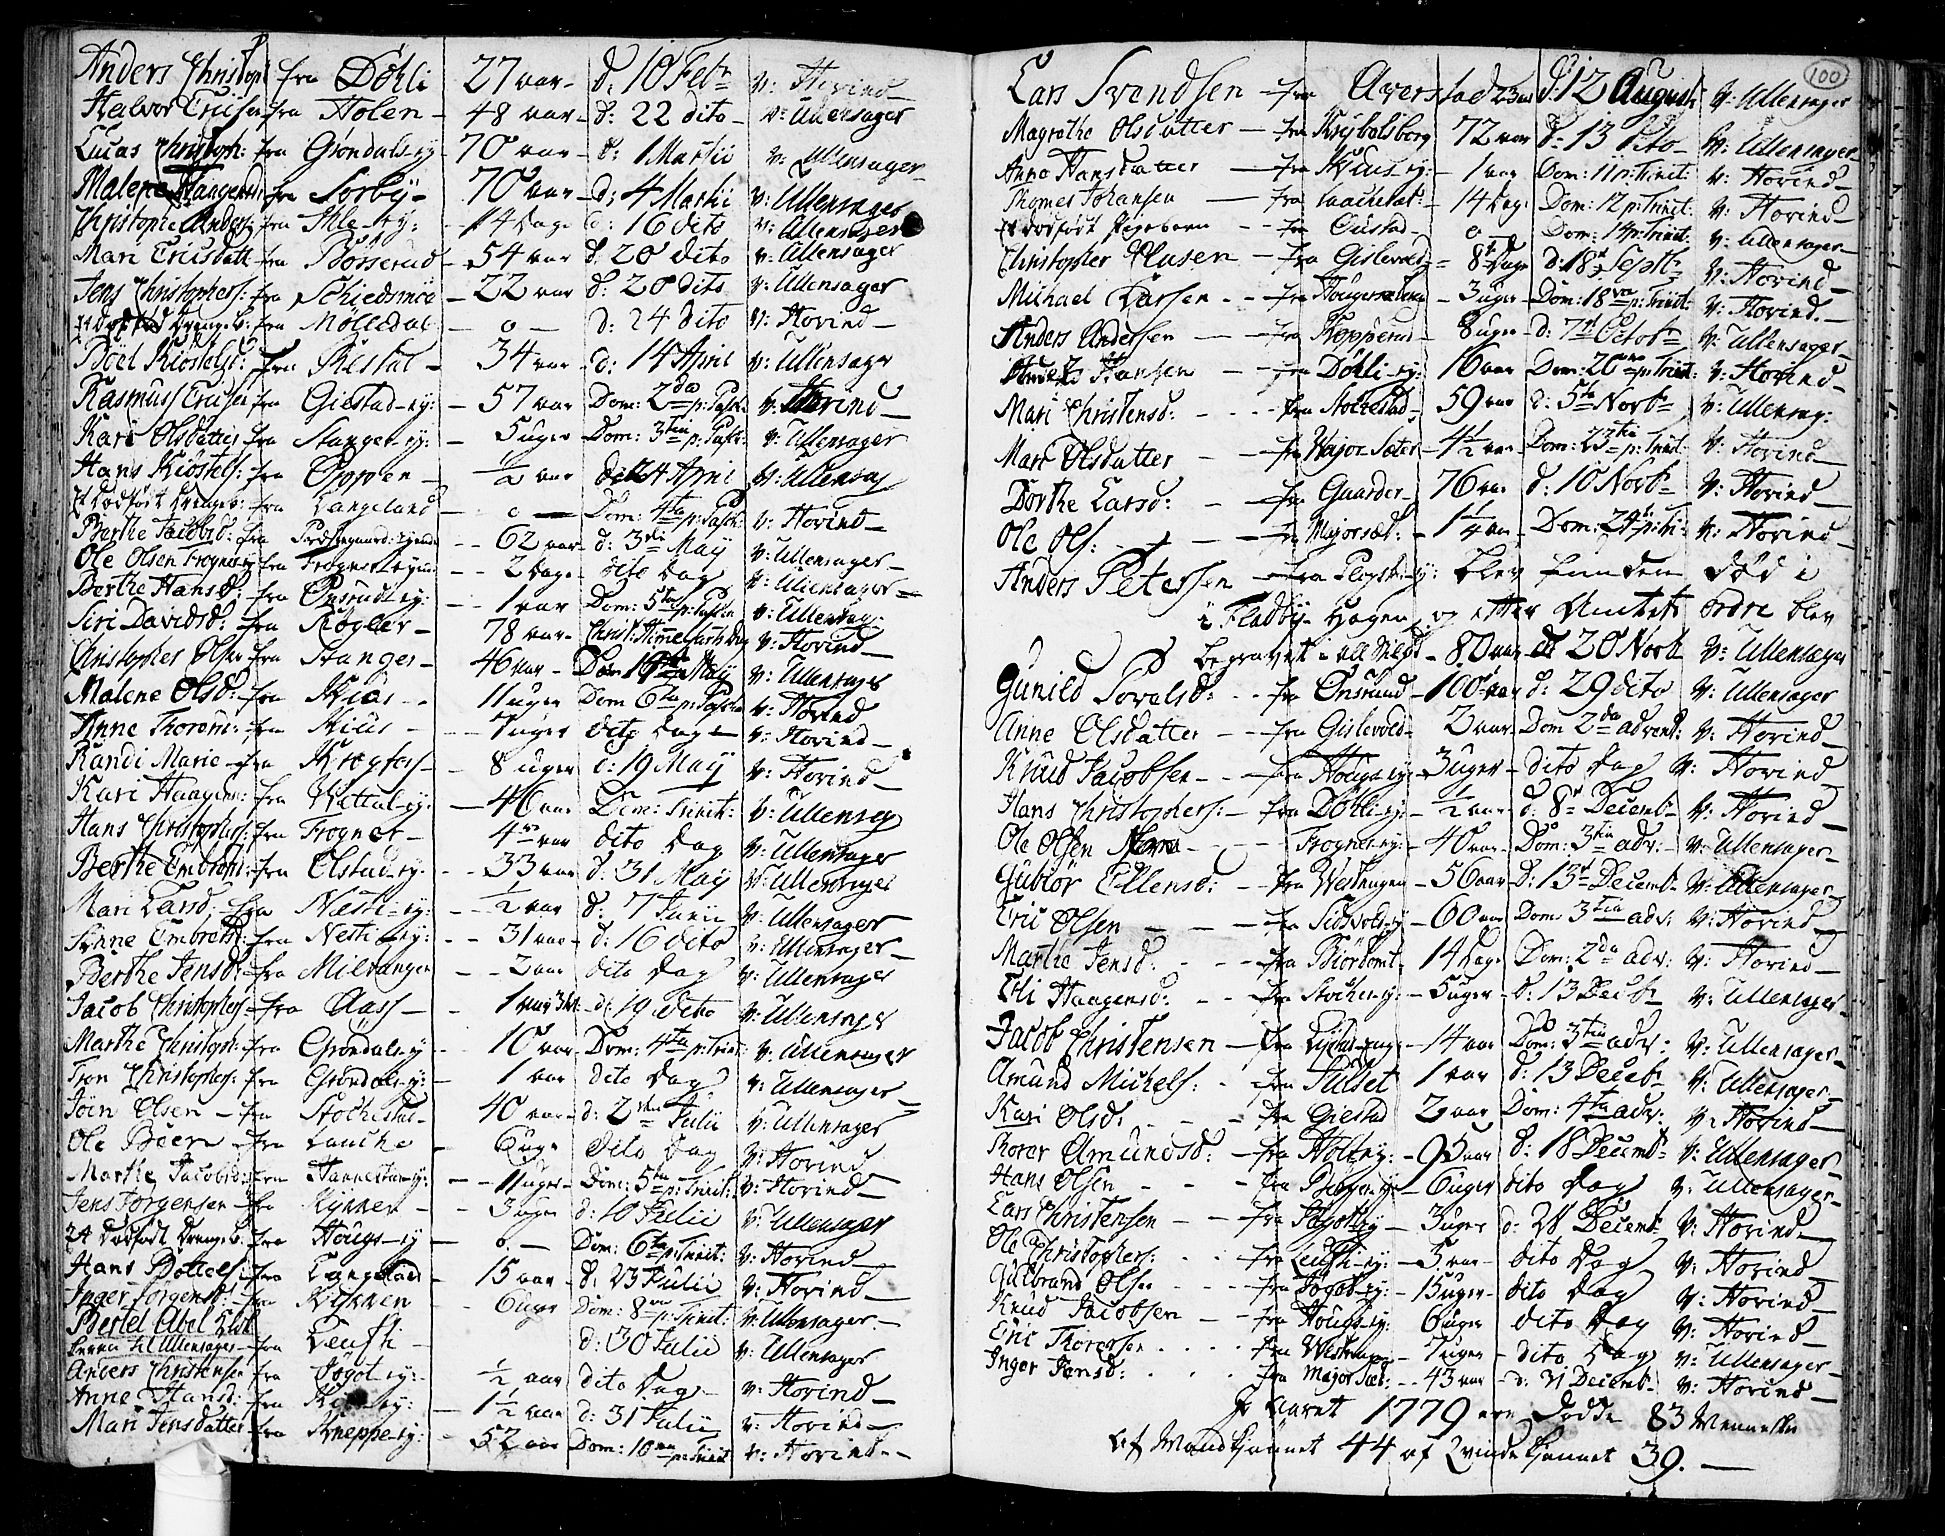 Anders Christoph: fra Döhli 27 aar d: 10 Febr v: Hovind
Halvor Ericsen fra Holen 48 aar d: 22 dito v: Ullensager
Lucas Christoph: fra Gröndals-ey 70 aar d: 1 Martii v: Ullensager
Malene Haagensd: fra Sorby 70 aar d: 4 Martii v: Ullensager
Christophe Anders: fra -ey: 14 Dage d: 16 dito v: Ullensager
Mari Ericsdatt fra Bosserud 54 aar d: 20 dito v: Ullensager
Jens Christophers: fra Schiedsmöe 22 aar d: 20 dito v: Ullensager
Et Dödfød Drengeb: fra Mölledal 0 d: 24 dito v: Hovind
Böel Kiöstelsd: fra Restal 34 aar d: 14 April v: Ullensager
Rasmus Ericsen fra Giestad-ey: 57 aar Dom: 2da p: Pasch: v: Hovind
Kari Olsdatter fra Stanger-ey: 5 uger Dom: 3tia p: Pasch: v: Ullensager
Hans Kiöstels: fra Oppen ½ aar 24 April v: Ullensag
Et Dödfödt Drengeb: fra Langeland 0 Dom: 4ta p: Pasch: v: Hovind
Berthe Jacobsd: fra Præstegaard: Eyende 62 aar d: 3di May v: Ullensager
Ole Olsen Frogner-ey fra Frogner eyende 2 Dage dito Dag v: Ullensager
Berthe Hansd: fra Onsrud-ey: 1 aar Dom: 5ta p: Pascha v: Ullensag:
Siri Davidsd: fra Rögler 78 aar Christ: Himmelfarts Dag v: Hovind
Christopher Olsen fra Stanger 46 aar May v: Ullensager
Malene Olsd: fra Kius 11 uger Dom 6ta p: Pascha v: Hovind
Anne Thorens: fra Kius 7 uger dito Dag v: Hovind
Randi Marie fra Krogfos 8 uger d: 19 May v: Hovind
Kari Haagens: fra Hattul-ey: 40 aar Dom: Trinit: v: Ullensag
Hans Christophers: fra Frogner 4 aar dito Dag v: Ullensager
Berthe Embrets: fra Olstad-ey: 33 aar d: 31 May v: Ullensager
Mari Larsd: fra Næsti-ey: ½ aar d: 7 Junii v: Ullensager
Anne Embretsd: fra Nesti-ey: 31 aar d: 16 dito v: Ullensager
Berthe Jensd: fra Milvangen 2 aar dito Dag v: Ullensager
Jacob Christophers: fra Aass 1 aar d: 19 dito v: Ullensager
Marthe Christoph: fra Gröndals-ey 10 aar Dom: 4ta p: Trinit: v: Ullensager
Tron Christophers: fra Gröndals-ey: 1 aar dito Dag v: Ullensager
Jöen Olsen fra Stochestad 40 aar d: 2 Julii v: Ullensager
Ole Beer fra Lauche 6 uger dito Dag v: Hovind
Marthe Jacobsd: fra Hannestad-ey: 11 uger Dom: 5ta p: Trinit: v: Hovind
Jens Jörgensen fra Rykken 3 uger d: 10 Julii v: Ullensager
Et dödfödt Drengeb: fra Hougs-ey 0 Dom: 6ta p: Trinit: v: Hovind
Hans Bottels: fra Langeland 15 aar d: 23 Julii v: Hovind
Inger Jörgensd: fra Rykken 6 uger Dom: 8va p: Trinit: v: Ullensager
Bertel Abel
til Ullensager fra Leufsti d: 30 Julii v: Ullensager
Anders Christensen fra Fogot-ey: ½ aar dito Dag v: Hovind
Anne Hansd: fra -ey: 1½ aar d: 31 Julii v: Hovind
Mari Jensdatter fra Kneppe-ey: 52 aar Dom: 10ma p: Trinit: v: Hovind
100
Lars Svendsen fra Averstad 23 aar d: 12 August v: Ullensager
Magrethe Olsdatter fra Kribolsborg 72 aar d: 13 dito v: Ullensager
Anne Hansdatter fra Kius-ey: 1 aar Dom: 11 p: Trinit: v: Hovind
Thomes Johansen fra 14 Dage Dom: 12 p: Trinit: v: Hovind
Et dödfödt Pigebarn fra Oustad 0 Dom: 14 p: Trinit: v: Ullensager
Christopher Clusen fra Gislevold 8 Dage d: 18 Septbr v: Hovind
Michael Larsen fra 3 uger Dom: 18va p: Trinit: v: Hovind
Anders Andersen fra Kepperud 8 uger d: 7 Octobr v: Ullensager
Hansen fra Döhli-ey: 16 aar Dom: 20 p: Trinit: v: Hovind
Mari Christensd: fra Stochestad 59 aar d: 5te Novbr v: Ullensag:
Mari Olsdatter fra Major Sæter 4½ aar Dom: 23tia p: Trinit: v: Hovind
Dorthe Larsd: fra Gaarder 76 aar d: 10 Novbr v: Hovind
Ole Ols: fra Majorsæt: 1¼ aar Dom: 24 p: Tri: v: Hovind
Anders Petersen fra -ey: blev funden död i
i Fladby Hagen og efter Amtets Ordre blev
begravet i 80 aar d 20 Novb v: Ullensager
Gunild Povelsd: fra Onsrund 100 aar d: 29 dito v: Ullensager
Anne Olsdatter fra Gislevold 2 aar Dom 2da advent: v: Hovind
Knud Jacobsen fra Hougs-ey: 3 uger dito Dag v: Hovind
Hans Christophers: fra Döhli-ey: ½ aar d: 8 Decembr v: Hovind
Ole Olsen Frogner-ey: 40 aar Dom: 3tia adv: v: Ullensager
Gubiör Ellensd: fra Westengen 56 aar d: 13 Decemb v: Ullensager
Eric Olsen fra Sidsvols-ey 60 aar Dom 3tia adv: v: Hovind
Marthe Jensd: fra Biörtomt 14 Dage Dom: 2da adv: v: Hovind
Eli Haagensd: fra Stoche-ey: 5 uger d: 13 Decbr v: Ullensager
Jacob Christensen fra 14 aar Dom: 3tia adv: v: Ullensager
Amund Michels: fra Julset 1 aar d: 13 Decebr v: Ullensager
Kari Olsd: fra Giestad 2 aar Dom: 4ta adv: v: Hovind
Korer Amundsd: fra Holt-ey: 95 aar d: 18 Decemb v: Ullensager
Hans Olsen fra 6 uger dito Dag v: Ullensager
Lars Christensen fra Fogot-ey 3 uger d: 28 Decemb v: Hovind
Ole Christophers: fra Leufsti-ey: 5 aar dito Dag v: Hovind
Gulbrand Olsen fra Fogot-ey: 15 uger dito Dag v: Hovind
Knud Jacobsen fra Hougs-ey: 6 uger dito Dag v: Hovind
Eric Thorersen fra 7 uger dito Dag v: Ullensager
Inger Jensd: fra Major Sæt: 43 aar d: 31 Decemb v: Hovind
Jo Aaret 1779 ere Dödde 83 Mennesker
af Mandkjönnet 44 af Qvindekjönnet 39.